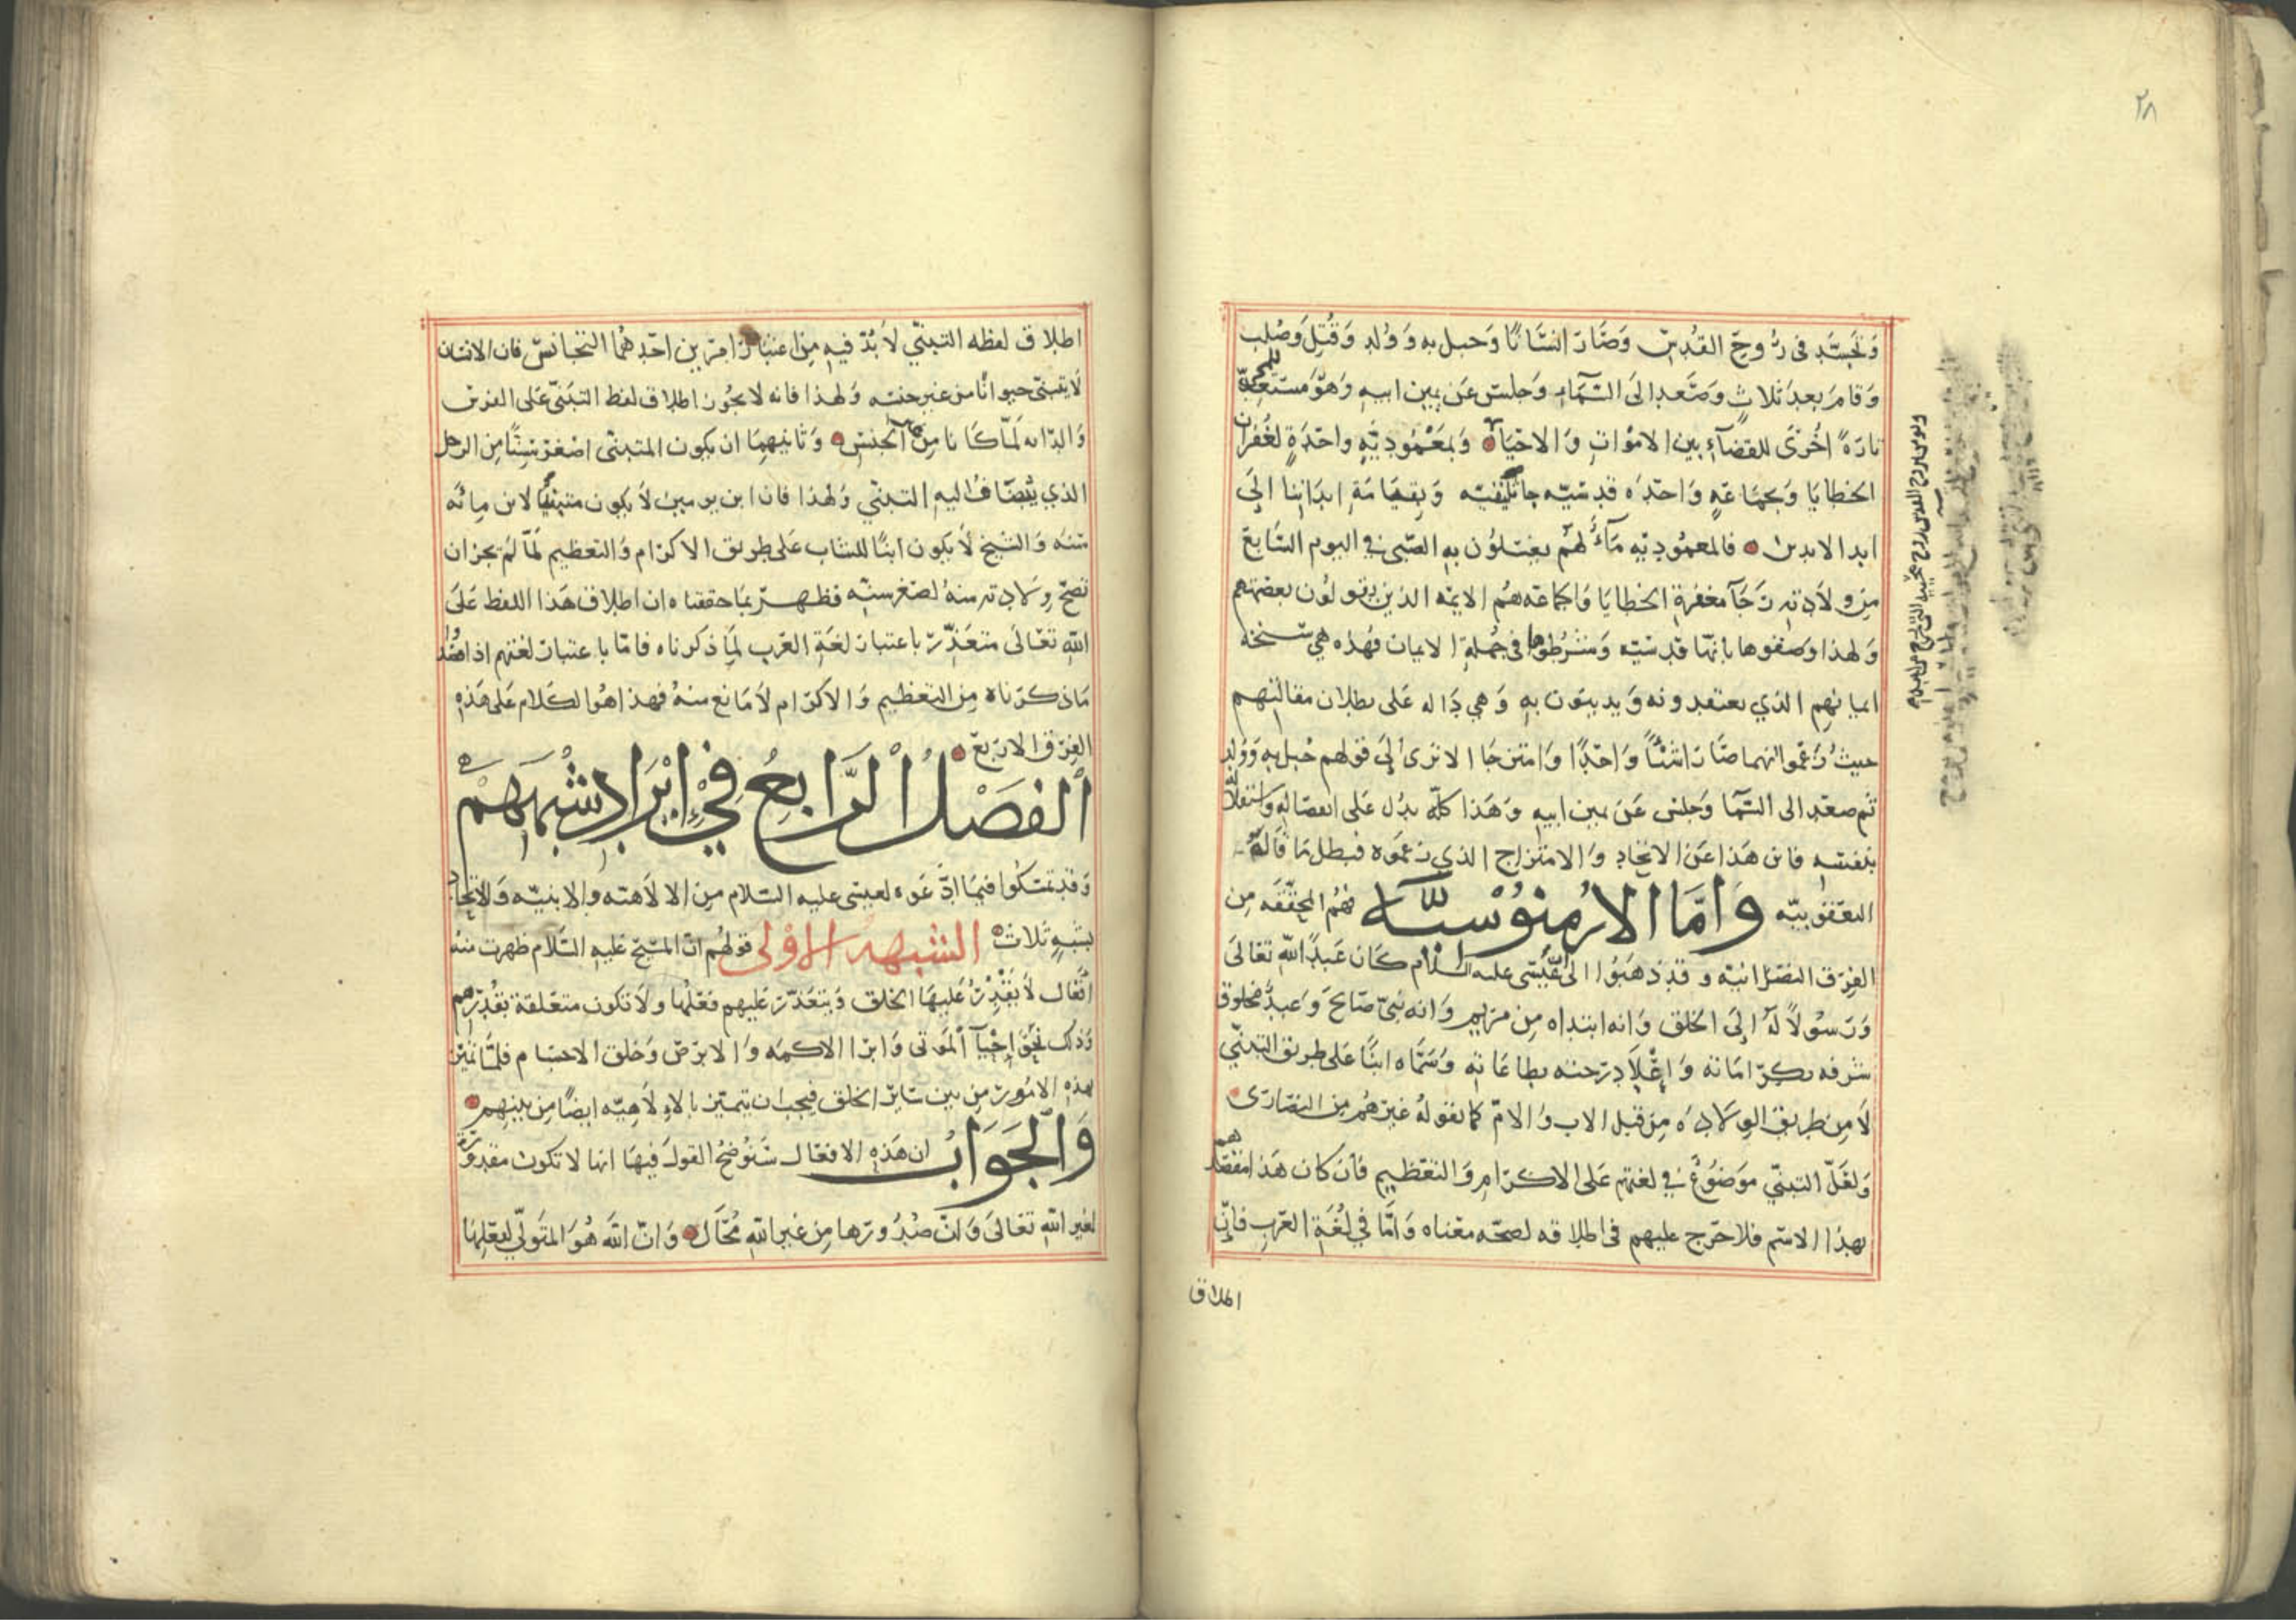 ٢٨
وتجسد فى روح القدس وصار انسانا وحبل به وولد وقتل وصلب
وقام بعد ثلاث وصعد الى السماء وجلس عن يمين ابيه وهو مستعد للمجى
تارة اخرى للقضاء بين الاموات والاحياء وبمعمودية واحدة لغفران
الخطايا وبجماعة واحدة قدسية جاثليقيه وبقيامة ابداننا الى
ابد الابدين فالمعمودية ماء لهم يغسلون به الصبى في اليوم السابع
من ولادته رجآ مغفرة الخطايا والجماعة هم الايمه الذين يقولون بعصمتهم
ولهذا وصفوها بانها قدسية وشرطوها فى جملة الايمان فهذه هي نسخة
ايمانهم الذي يعتقدونه ويدينون به وهي دالة على بطلان مقالتهم
حيث زعموا انهما صارا شئا واحدا وامتزجا الا ترى الى قولهم حبل به وولد
ثم صعد الى السما وجلس عن يمين ابيه وهذا كله يدل على انفصاله واستقلاله
بنفسه فاين هذا عن الاتحاد والامتزاج الذي زعموه فبطل ما قاله
اليعقوبيه واما الارمنوسية فهم المحققه من
الفرق النصرانية وقد ذهبوا الى ان عيسى عليه السلام كان عبدا لله تعالى
ورسولا له الى الخلق وانه ابتداه من مريم وانه نبي صالح وعبد مخلوق
شرفه بكراماته واعلا درجته بطاعاته وسماه ابنا على طريق التبني
لا من طريق الولادة من قبل الاب والام كما يقوله غيرهم من النصارى
ولعل التبني موضوع في لغتهم على الاكرام والتعظيم فان كان هذا مقصدهم
بهذا الاسم فلا حرج عليهم فى اطلاقه لصحة معناه واما في لغة العرب فان
اطلاق
اطلاق لفظه التبني لا بد فيه من اعتبار امرين احدهما التجانس فان الانسان
لا يتبنى حيوانا من غير جنسه ولهذا فانه لا يجوز اطلاق لفظ التبنى على الفرس
والدابه لما كانا من الجنس وثانيهما ان يكون المتبنى اصغر سنا من الرجل
الذي يضاف اليه التبني ولهذا فان ابن يومين لا يكون متبنيا لابن مائه
سنه والشيخ لا يكون ابنا للشاب على طريق الاكرام والتعظيم لما لم يجز ان
تصح ولادته منه لصغر سنه فظهر بما حققناه ان اطلاق هذا اللفظ على
الله تعالى متعذر باعتبار لغة العرب لما ذكرناه فاما باعتبار لغتهم اذا قصدوا
ماذكرناه من التعظيم والاكرام لا مانع منه فهذا هو الكلام على هذه
الفرق الاربع
الفصل الرابع في ايراد شبههم
وقد تمسكوا فيما ادعوه لعيسى عليه السلام من الالاهته والابنيه والاتحاد
بشبه ثلاث الشبهه الاولى قولهم ان المسيح عليه السلام ظهرت منه
افعال لا يقدر عليها الخلق ويتعذر عليهم فعلها ولا تكون متعلقة بقدرهم
وذلك نحو إحيآ الموتى وابرا الاكمه والابرص وخلق الاجسام فلما تميز
بهذه الامور من بين ساير الخلق فيجب ان يتميز بالالاهيه ايضا من بينهم
والجواب ان هذه الافعال سنوضح القول فيها انها لا تكون مقدورة
لغير الله تعالى وان صدورها من غير الله محال وان الله هو المتولي لفعلها